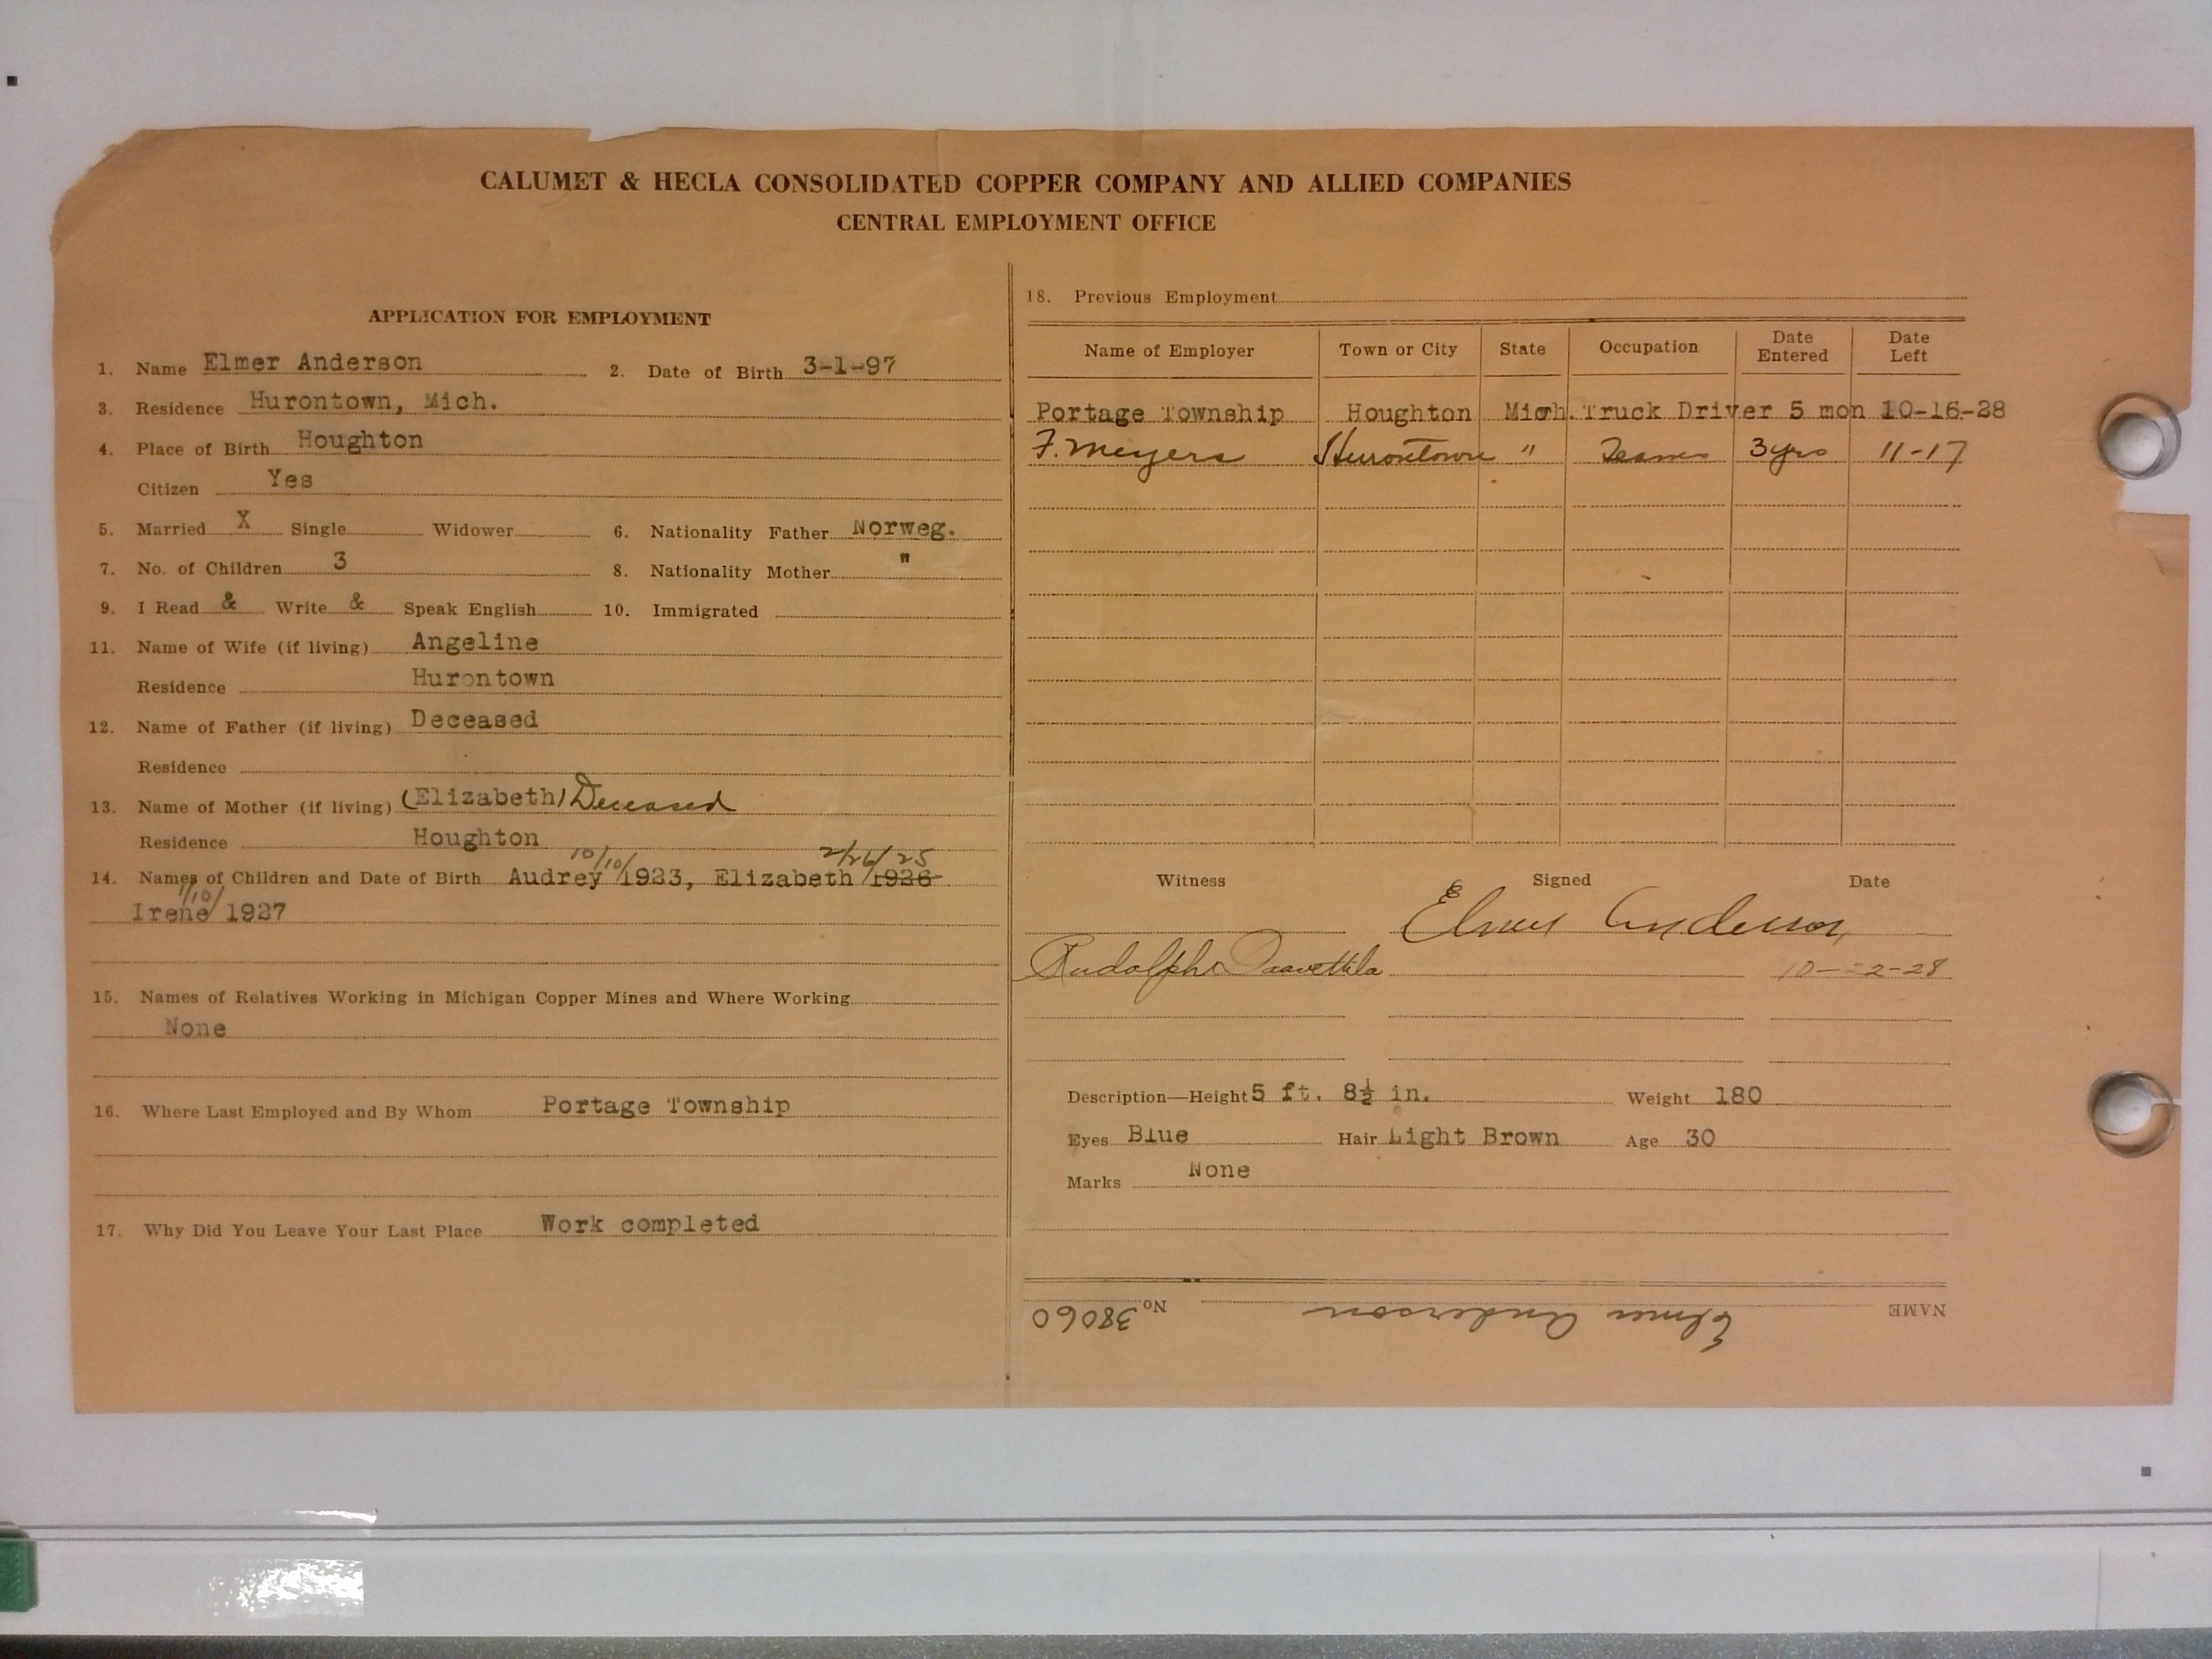 CALUMET & HECLA CONSOLIDATED COPPER COMPANY AND ALLIED COMPANIES
CENTRAL EMPLOYMENT OFFICE
APPLICATION FOR EMPLOYMENT
1. Name Elmer Anderson 2. Date of Birth 3-1-97
3. Residence Hurontown, Mich.
4. Place of Birth Houghton
Citizen Yes
5. Married X Single Widower 6. Nationality Father Norweg.
7. No. of Children 3 8. Nationality Mother "
9. I Read & Write & Speak English 10. Immigrated
11. Name of Wife (if living) Angeline
Residence Hurontown
12. Name of Father (if living) Deceased
Residence
13. Name of Mother (if living) (Elizabeth) Deceased
Residence Houghton
10/10/ 2/26/25
14. Names of Children and Date of Birth Audrey 1923, Elizabeth 1926
1/10/
Irene 1927
15. Names of Relatives Working in Michigan Copper Mines and Where Working
None
16. Where Last Employed and By Whom Portage Township
17. Why Did You Leave Your Last Place Work completed
18. Previous Employment
Name of Employer Town or City State Occupation Date Entered Date Left
Portage Township Houghton Mich. Truck Driver 5 mon 10-16-28
F. Meyers Hurontown " 3 yrs 11-17
Witness Signed Date
Elmer Anderson
Rudolph 10-22-28
Description—Height 5 ft. 8½ in. Weight 180
Eyes Blue Hair Light Brown Age 30
Marks None
NAME Elmer Anderson No. 38060